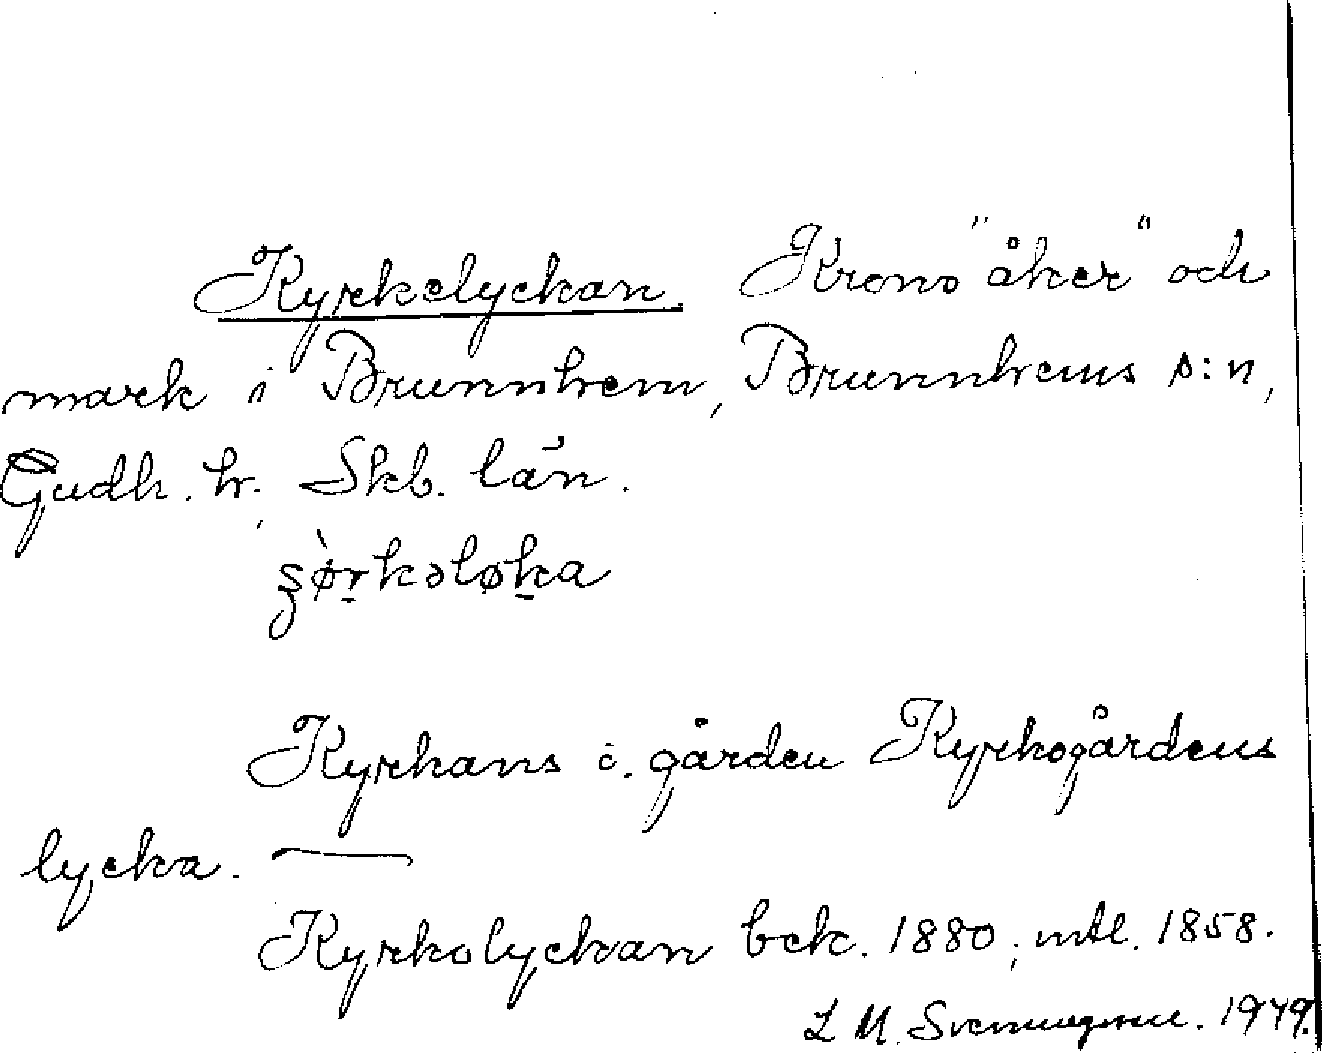 Kyrkelyckan. Krono "åker" och
mark i Brunnhem, Brunnhems s:n,
Gudh. hr. Skb. län.
Kyrkans i. gården Kyrkogårdens
lycka. —
Kyrkolyckan bek. 1880; mtl. 1858.
L M. 1949.